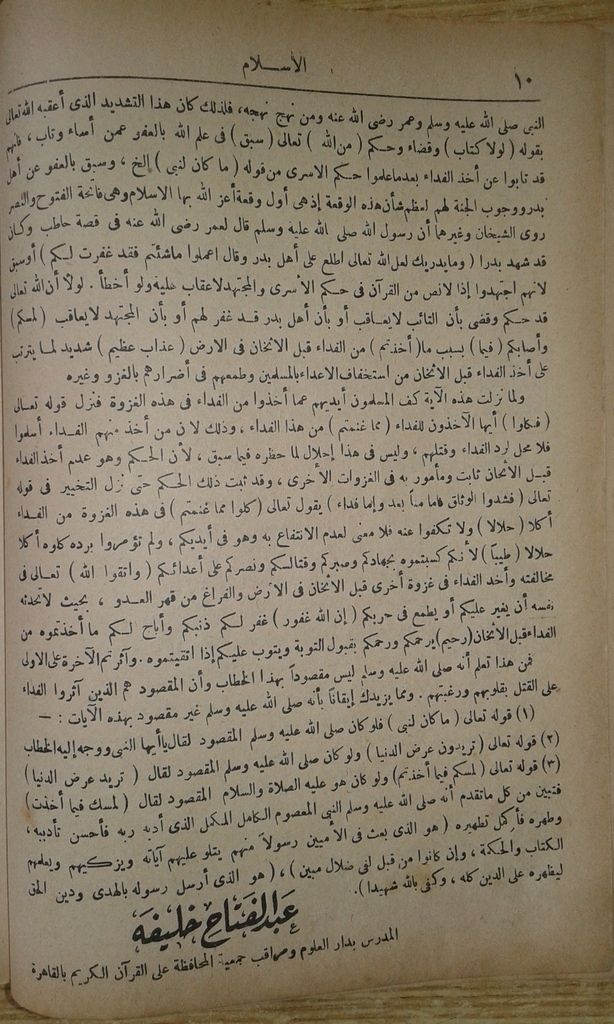 ١٠
الأســلام
النبى صلى الله عليه وسلم وعمر رضى الله عنه ومن نهج نهجه، فلذلك كان هذا التشديد الذى أعقبه الله تعالى
بقوله (لولا كتاب) وقضاء وحكم (من الله) تعالى (سبق) فى علم الله بالعفو عمن أساء وتاب، فانهم
قد تابوا عن أخذ الفداء بعد ماعلموا حكم الاسرى من قوله (ما كان لنبى) الخ، وسبق بالعفو عن أهل
بدر ووجوب الجنة لهم لعظم شأن هذه الوقعة إذ هى أول وقعة أعز الله بها الاسلام وهى فاتحة الفتوح والنصر
روى الشيخان وغيرهما أن رسول الله صلى الله عليه وسلم قال لعمر رضى الله عنه فى قصة حاطب وكان
قد شهد بدرا (وما يدريك لعل الله تعالى اطلع على أهل بدر وقال اعملوا ماشئتم فقد غفرت لـكم) أو سبق
لانهم اجتهدوا إذا لانص من القرآن فى حكم الأسرى والمجتهد لاعقاب عليه ولو أخطأ . لولا أن الله تعالى
قد حـكم وقضى بأن التائب لايعـاقب أو بأن أهل بدر قـد غفر لهم أو بأن المجتهد لايعاقب (لمسكم)
وأصابكم (فيما) بسبب ما (أخذتم) من الفداء قبل الاثخان فى الارض (عذاب عظيم) شديد لمـا يترتب
على أخذ الفداء قبل الاثخان من استخفاف الاعداء بالمسلمين وطمعهم فى أضرارهم بالغزو وغيره
ولما نزلت هذه الآية كف المسلمون أيديهم عما أخذوا من الفداء فى هذه الغزوة فنزل قوله تعـالى
(فـكلوا) أيها الآخذون للفداء (مما غنمتم) من هذا الفداء، وذلك لان من أخذ منهم الفـداء أسلموا
فلا محل لرد الفداء وقتلهم، وليس فى هذا إحلال لما حظره فيما سبق، لأن الحـكم وهو عدم أخذ الفداء
قبـل الأثخان ثابت ومأمور به فى الغزوات الأخرى، وقد ثبت ذلك الحـكم حتى نزل التخيير فى قوله
تعالى (فشدوا الوثاق فاما مناً بعد وإما فداء) يقول تعالى (كلوا مما غنمتم) فى هذه الغزوة من الفـداء
أكلا (حلالا) ولا تكفوا عنه فلا معنى لعدم الانتفاع به وهو فى أيديكم، ولم تؤمروا برده كلوه أكلا
حلالا (طيباً) لأنكم كسبتموه بجهادكم وصبركم وقتالـكم ونصركم على أعدائـكم (واتقوا الله) تعـالى فى
مخالفته وأخد الفداء فى غزوة أخرى قبل الاثخان فى الارض والفراغ من قهر العـدو، بحيث لاتحدثه
نفسه أن يغير عليكم أو يطمع فى حربكم (إن الله غفور) غفر لـكم ذنبـكم وأباح لـكم ما أخذتموه من
الفداء قبل الاثخان (رحيم) يرحمكم ورحمكم بقبول التوبة ويتوب عليـكم إذا اتقيتموه. وآثرتم الآخرة على الاولى
فمن هذا تعلم أنه صلى الله عليه وسلم ليس مقصوداً بهـذا الخطاب وأن المقصود هم الذين آثروا الفداء
على القتل بقلوبهم ورغبتهم . ومما يزيدك إيقانا بأنه صلى الله عليه وسلم غير مقصود بهذه الآيات : —
(١) قوله تعالى (ما كان لنبى) فلو كان صلى الله عليه وسلم المقصود لقال ياأيها النبى ووجه إليه الخطاب
(٢) قوله تعالى (تريدون عرض الدنيا) ولو كان صلى الله عليه وسلم المقصود لقال (تريد عرض الدنيا)
(٣) قوله تعالى (لمسكم فيما أخذتم) ولو كان هو عليه الصلاة والسلام المقصود لقال (لمسك فيما أخذت)
فتبين من كل ماتقدم أنه صلى الله عليه وسلم النبى المعصوم الـكامل المكمل الذى أدبه ربه فأحسن تأديبه،
وطهره فأكمل تطهيره (هو الذى بعث فى الأميين رسولاً منهم يتلو عليهم آياته ويزكيهم ويعلمهم
الكتاب والحكمة، وإن كانوا من قبل لفى ضلال مبين)، (هو الذى أرسل رسوله بالهدى ودين الحق
ليظهره على الدين كله، وكفى بالله شهيدا).
عبد الفتاح خليفه
المدرس بدار العلوم ومراقب جمعية المحافظة على القرآن الـكريم بالقاهرة